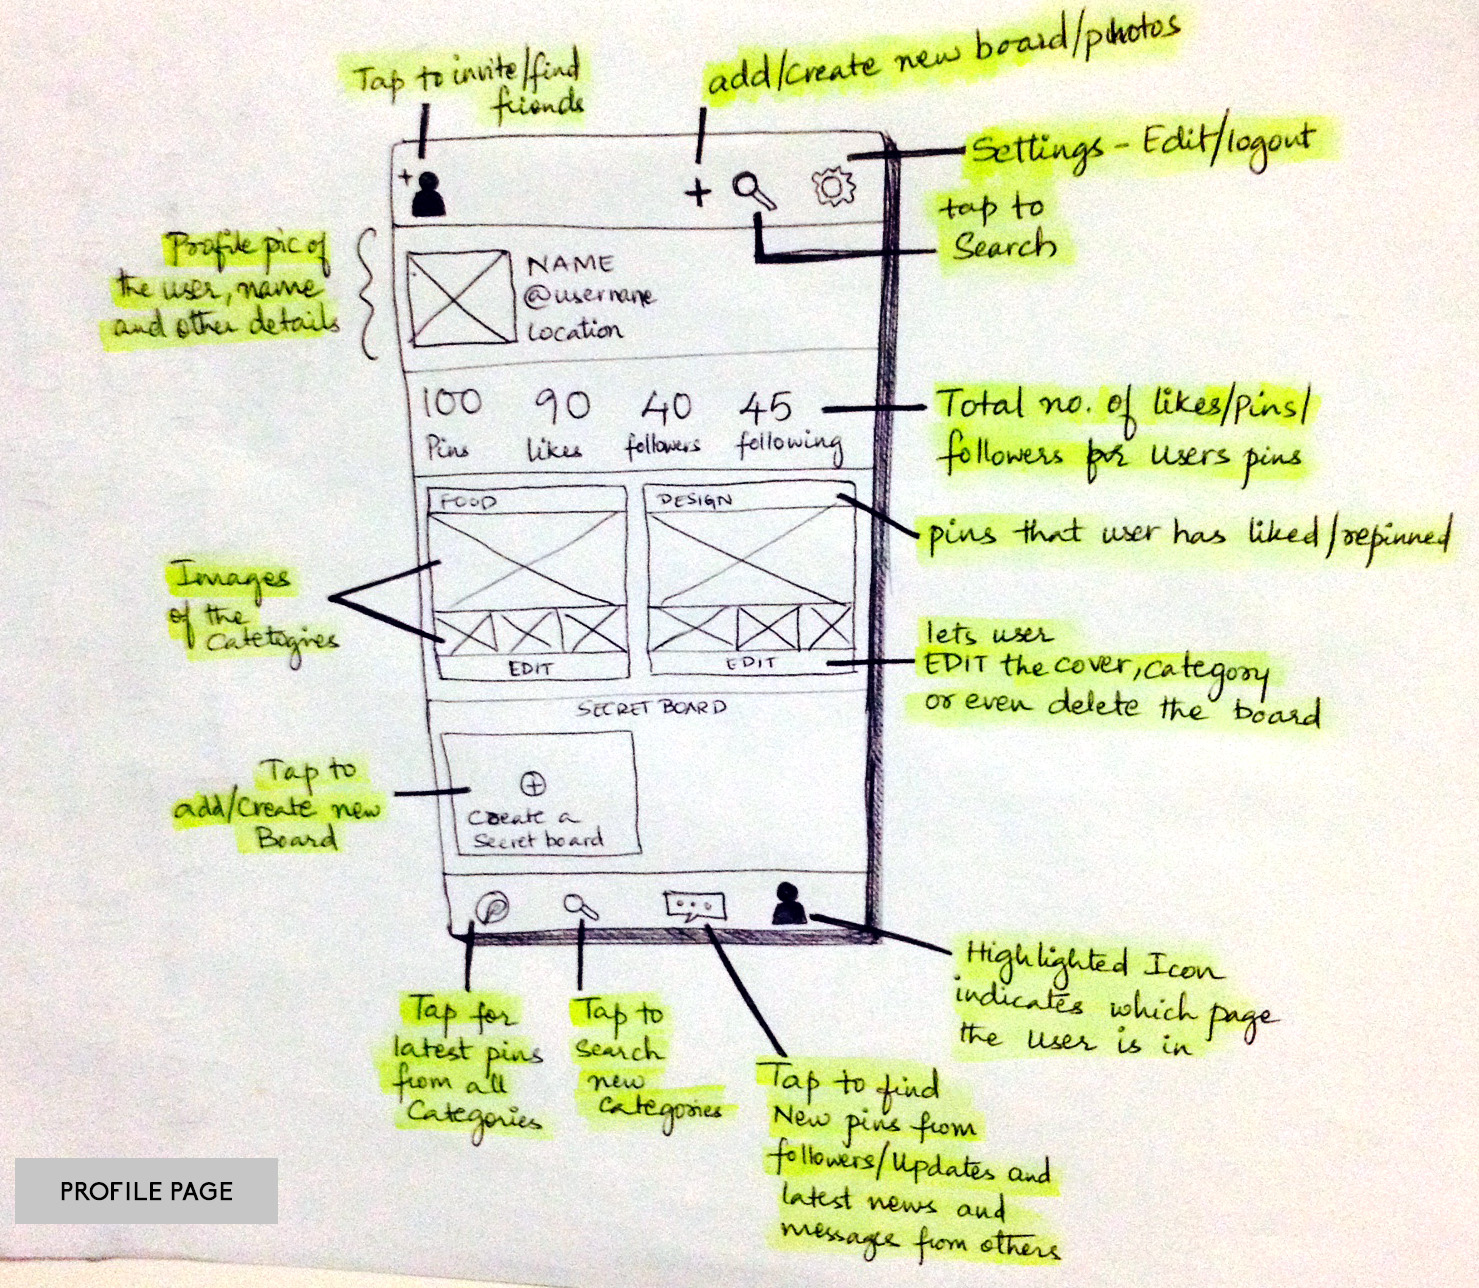 Tap to invite/find
friends
add/create new board/photos
Settings - Edit/logout
tap to
Search
Profile pic of
the user, name
and other details
NAME
@username
Location
100 90 40 45
Pins likes followers following
Total no. of likes/pins/
followers for users pins
FOOD DESIGN
pins that user has liked/repinned
Images
of the
Catetogires
EDIT EDIT
lets user
EDIT the cover, category
or even delete the board
SECRET BOARD
Tap to
add/create new
Board
Create a
Secret board
Highlighted Icon
indicates which page
the user is in
Tap for
latest pins
from all
Categories
Tap to
search
new
categories
Tap to find
New pins from
followers/Updates and
latest news and
messages from others
PROFILE PAGE